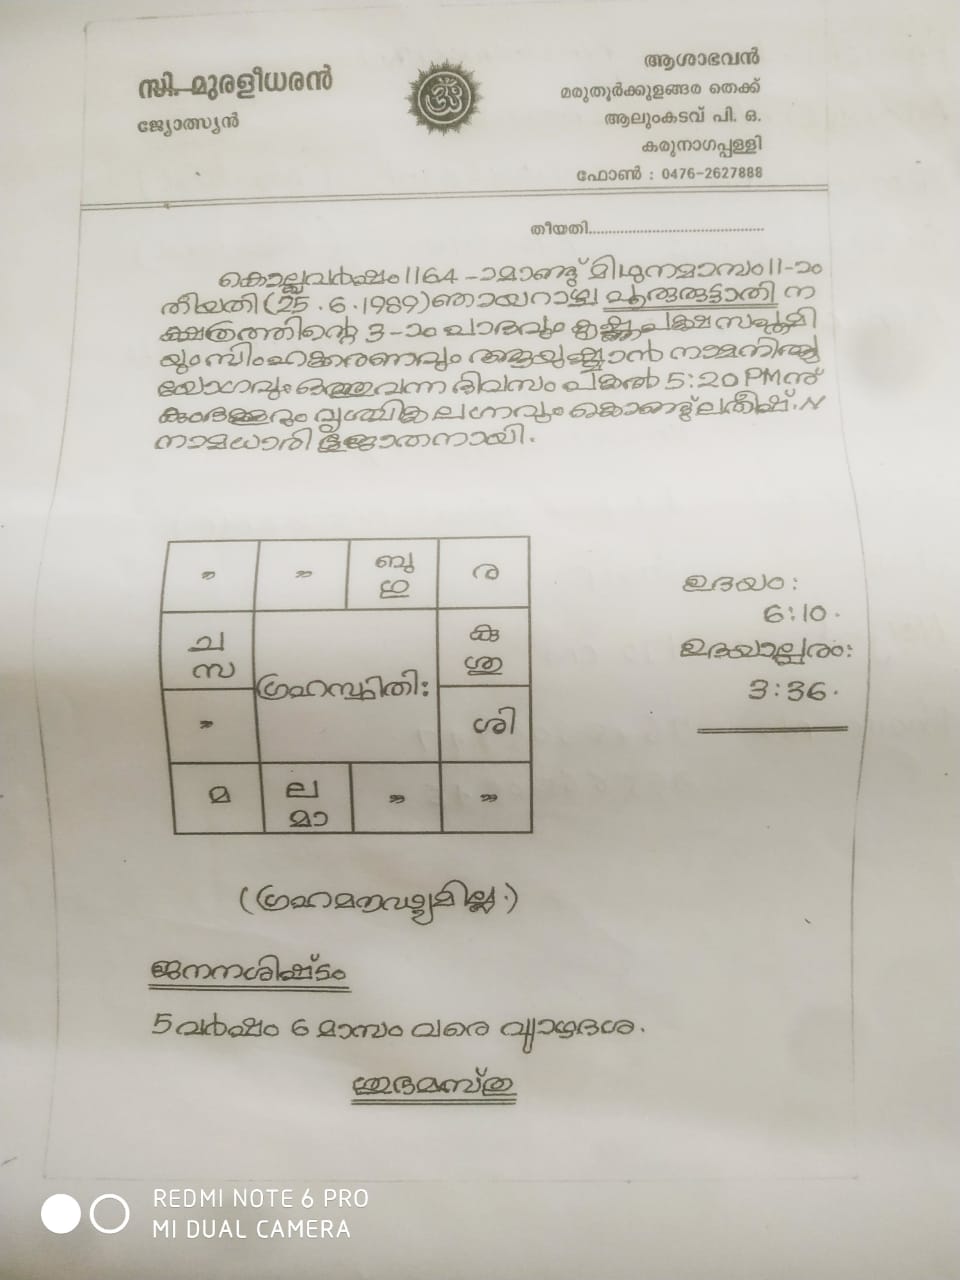 സി. മുരളീധരൻ
ജ്യോത്സ്യൻ
ആശാഭവൻ
മരുതൂർക്കുളങ്ങര തെക്ക്
ആലുംകടവ് പി. ഒ.
കരുനാഗപ്പള്ളി
ഫോൺ : 0476-2627888
തീയതി
കൊല്ലവർഷം 1164 -ാമാണ്ടു് മിഥുനമാസം 11-ാം
തീയതി (25.6.1989) ഞായറാഴ്ച പൂരുരുട്ടാതി ന
ക്ഷത്രത്തിന്റെ 3-ാം പാദവും കൃഷ്ണപക്ഷ സപ്തമി
യും സിംഹക്കരണവും ആയുഷ്മാൻ നാമനിത്യ
യോഗവും ഒത്തുവന്ന ദിവസം പകൽ 5:20 PM ന്
വൃശ്ചിക ലഗ്നവും കൊണ്ടു് ലതീഷ്. N
നാമധാരി ഭൂജാതനായി.
" " ബു ഗു ര
ച സ കു ശു
ഗ്രഹസ്ഥിതി:
" ശി
മ ല മാ " "
ഉദയം:
6:10.
ഉദയാല്പരം:
3:36.
ജനനശിഷ്ടം
5 വർഷം 6 മാസം വരെ വ്യാഴദശ.
ശുഭമസ്തു
REDMI NOTE 6 PRO
MI DUAL CAMERA